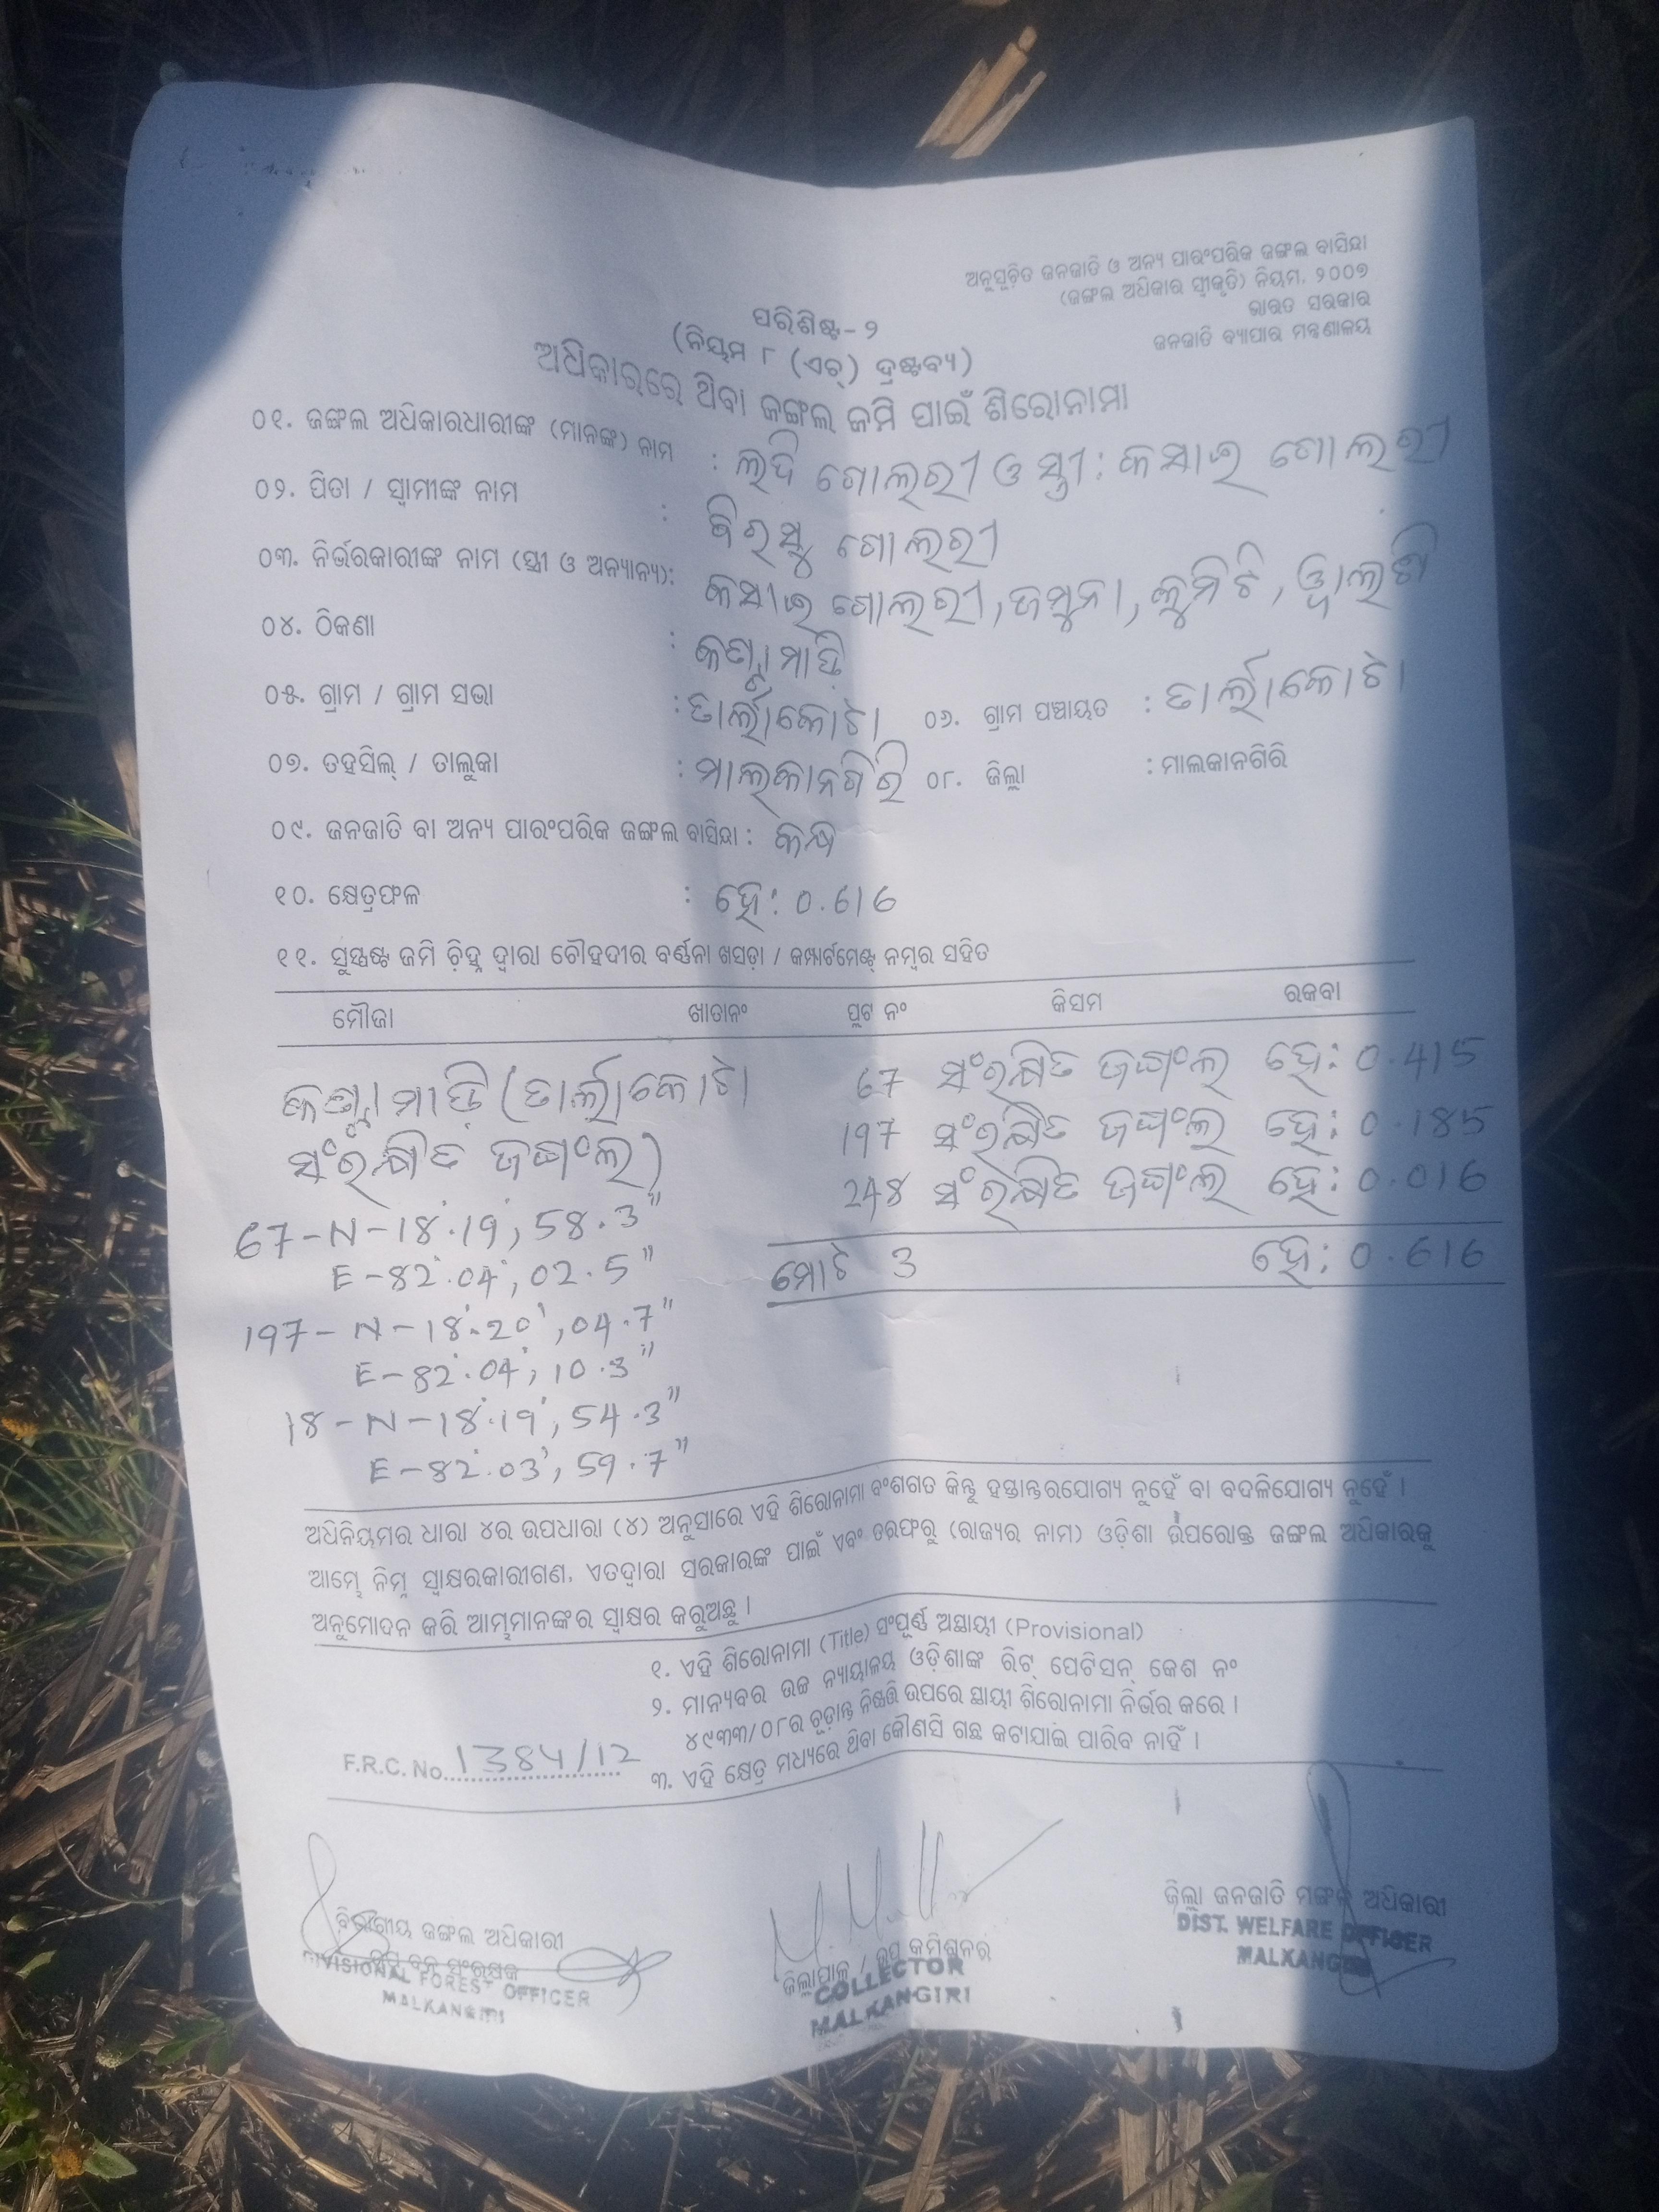 ଅନୁସୂଚିତ ଜନଜାତି ଓ ଅନ୍ୟ ପାରଂପରିକ ଜଙ୍ଗଲ ବାସିନ୍ଦା
(ଜଙ୍ଗଲ ଅଧିକାର ସ୍ୱୀକୃତି) ନିୟମ, ୨୦୦୭
ଭାରତ ସରକାର
ଜନଜାତି ବ୍ୟାପାର ମନ୍ତ୍ରଣାଳୟ
ପରିଶିଷ୍ଟ-୨
(ନିୟମ ୮ (ଏଚ୍) ଦ୍ରଷ୍ଟବ୍ୟ)
ଅଧିକାରରେ ଥିବା ଜଙ୍ଗଲ ଜମି ପାଇଁ ଶିରୋନାମା
୦୧. ଜଙ୍ଗଲ ଅଧିକାରଧାରୀଙ୍କ (ମାନଙ୍କ) ନାମ : ଲଦି ଗୋଲରୀ ଓ ସ୍ତ୍ରୀ: କସାଇ ଗୋଲରୀ
୦୨. ପିତା / ସ୍ୱାମୀଙ୍କ ନାମ : ବିରସୁ ଗୋଲରୀ
୦୩. ନିର୍ଭରକାରୀଙ୍କ ନାମ (ସ୍ତ୍ରୀ ଓ ଅନ୍ୟାନ୍ୟ): କସାଇ ଗୋଲରୀ, ଜମୁନା,
୦୪. ଠିକଣା :
୦୫. ଗ୍ରାମ / ଗ୍ରାମ ସଭା : ତାର୍ଲାକୋଟା ୦୬. ଗ୍ରାମ ପଞ୍ଚାୟତ : ତାର୍ଲାକୋଟା
୦୭. ତହସିଲ୍ / ତାଲୁକା : ମାଲକାନଗିରି ୦୮. ଜିଲ୍ଲା : ମାଲକାନଗିରି
୦୯. ଜନଜାତି ବା ଅନ୍ୟ ପାରଂପରିକ ଜଙ୍ଗଲ ବାସିନ୍ଦା : କନ୍ଧ
୧୦. କ୍ଷେତ୍ରଫଳ : ହେ: 0.616
୧୧. ସୁସ୍ପଷ୍ଟ ଜମି ଚିହ୍ନ ଦ୍ୱାରା ଚୌହଦୀର ବର୍ଣ୍ଣନା ଖସଡ଼ା / କମ୍ପାର୍ଟମେଣ୍ଟ୍ ନମ୍ବର ସହିତ
ମୌଜା ଖାତାନଂ ପ୍ଲଟ ନଂ କିସମ ରକବା
(ତାର୍ଲାକୋଟା 67 ସଂରକ୍ଷିତ ଜଙ୍ଗଲ ହେ: 0.415
ସଂରକ୍ଷିତ ଜଙ୍ଗଲ) 197 ସଂରକ୍ଷିତ ଜଙ୍ଗଲ ହେ: 0.185
248 ସଂରକ୍ଷିତ ଜଙ୍ଗଲ ହେ: 0.016
ମୋଟ 3 ହେ: 0.616
67-N-18°.19', 58.3"
E-82°.04', 02.5"
197-N-18°.20', 04.7"
E-82°.04', 10.3"
18-N-18°.19', 54.3"
E-82°.03', 59.7"
ଅଧିନିୟମର ଧାରା ୪ର ଉପଧାରା (୪) ଅନୁସାରେ ଏହି ଶିରୋନାମା ବଂଶଗତ କିନ୍ତୁ ହସ୍ତାନ୍ତରଯୋଗ୍ୟ ନୁହେଁ ବା ବଦଳିଯୋଗ୍ୟ ନୁହେଁ ।
ଆମ୍ଭେ ନିମ୍ନ ସ୍ୱାକ୍ଷରକାରୀଗଣ, ଏତଦ୍ୱାରା ସରକାରଙ୍କ ପାଇଁ ଏବଂ ତରଫରୁ (ରାଜ୍ୟର ନାମ) ଓଡ଼ିଶା ଉପରୋକ୍ତ ଜଙ୍ଗଲ ଅଧିକାରକୁ
ଅନୁମୋଦନ କରି ଆମ୍ଭମାନଙ୍କର ସ୍ୱାକ୍ଷର କରୁଅଛୁ ।
୧. ଏହି ଶିରୋନାମା (Title) ସଂପୂର୍ଣ୍ଣ ଅସ୍ଥାୟୀ (Provisional)
୨. ମାନ୍ୟବର ଉଚ୍ଚ ନ୍ୟାୟାଳୟ ଓଡ଼ିଶାଙ୍କ ରିଟ୍ ପେଟିସନ୍ କେଶ ନଂ
୪୯୩୩/୦୮ର ଚୂଡ଼ାନ୍ତ ନିଷ୍ପତ୍ତି ଉପରେ ସ୍ଥାୟୀ ଶିରୋନାମା ନିର୍ଭର କରେ ।
୩. ଏହି କ୍ଷେତ୍ର ମଧ୍ୟରେ ଥିବା କୌଣସି ଗଛ କଟାଯାଇ ପାରିବ ନାହିଁ ।
F.R.C. No. 1384/12
ବିଭାଗୀୟ ଜଙ୍ଗଲ ଅଧିକାରୀ
DIVISIONAL FOREST OFFICER
MALKANGIRI
ଜିଲ୍ଲାପାଳ / ଉପ କମିଶନର
COLLECTOR
MALKANGIRI
ଜିଲ୍ଲା ଜନଜାତି ମଙ୍ଗଳ ଅଧିକାରୀ
DIST. WELFARE OFFICER
MALKANGIRI